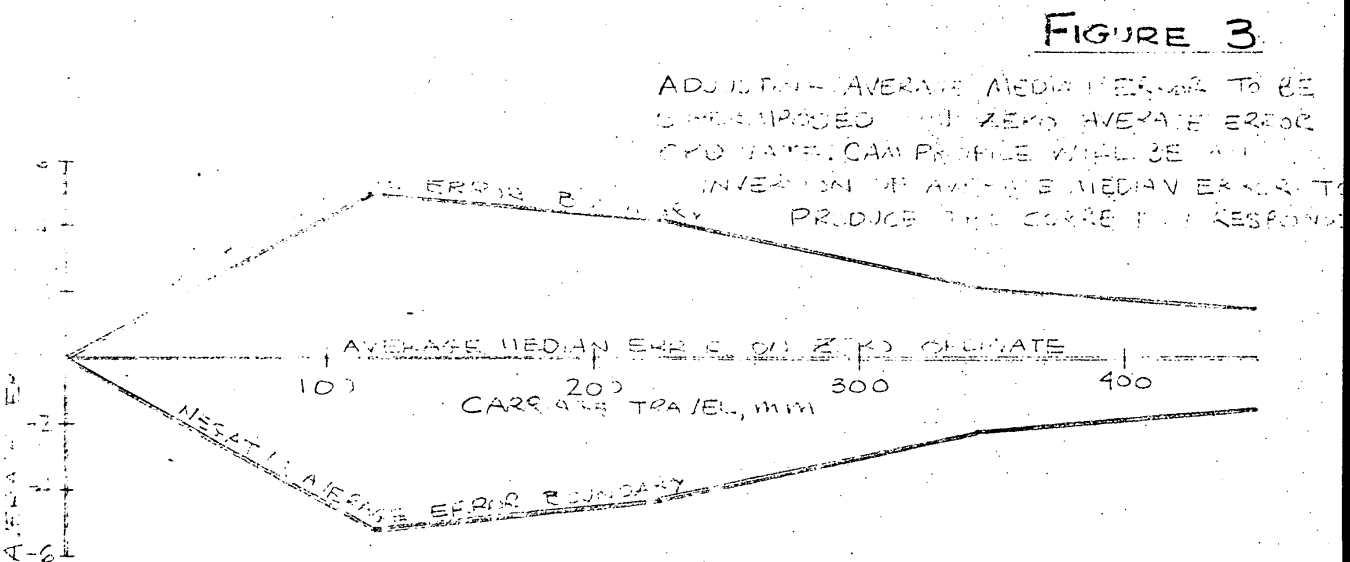 FIGURE 3
AVERAGE MEDIAN ERROR TO BE
ZERO AVERAGE ERROR
CAM PROFILE WILL BE AN
INVERSION OF AVERAGE MEDIAN ERROR TO
PRODUCE THE CORRECT RESPONSE
6
ERROR BOUNDARY
AVERAGE MEDIAN ERROR ON ZERO ORDINATE
100 200 300 400
CARRIAGE TRAVEL, mm
-2
NEGATIVE AVERAGE ERROR BOUNDARY
-6